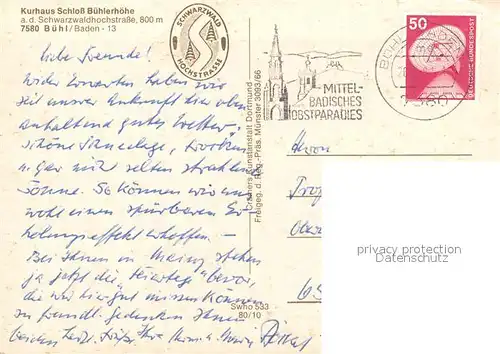 Kurhaus Schloß Bühlerhöhe
a. d. Schwarzwaldhochstraße, 800 m
7580 Bühl/Baden - 13
SCHWARZWALD
HOCHSTRASSE
Liebe Freunde!
Wider Erwarten haben wir
seit unserer Ankunft hier oben
anhaltend gutes Wetter,
schöne Schneelage,
u. gar nicht selten strahlende
Sonne. So können wir nun
wohl einen spürbaren Er-
holungseffekt erhoffen. -
Bei Ihnen in Mainz stehen
ja jetzt die "Feiertage" bevor,
die wir hier gut missen können
In freundl. Gedenken Ihnen
beiden herzl. Grüße Ihre
Cramers Kunstanstalt Dortmund
Freigeg. d. Reg.-Präs. Münster 3093/66
Swho 533
80/10
MITTEL-
BADISCHES
OBSTPARADIES
BÜHL
50
DEUTSCHE BUNDESPOST
Herrn
Prof
65
privacy protection
Datenschutz